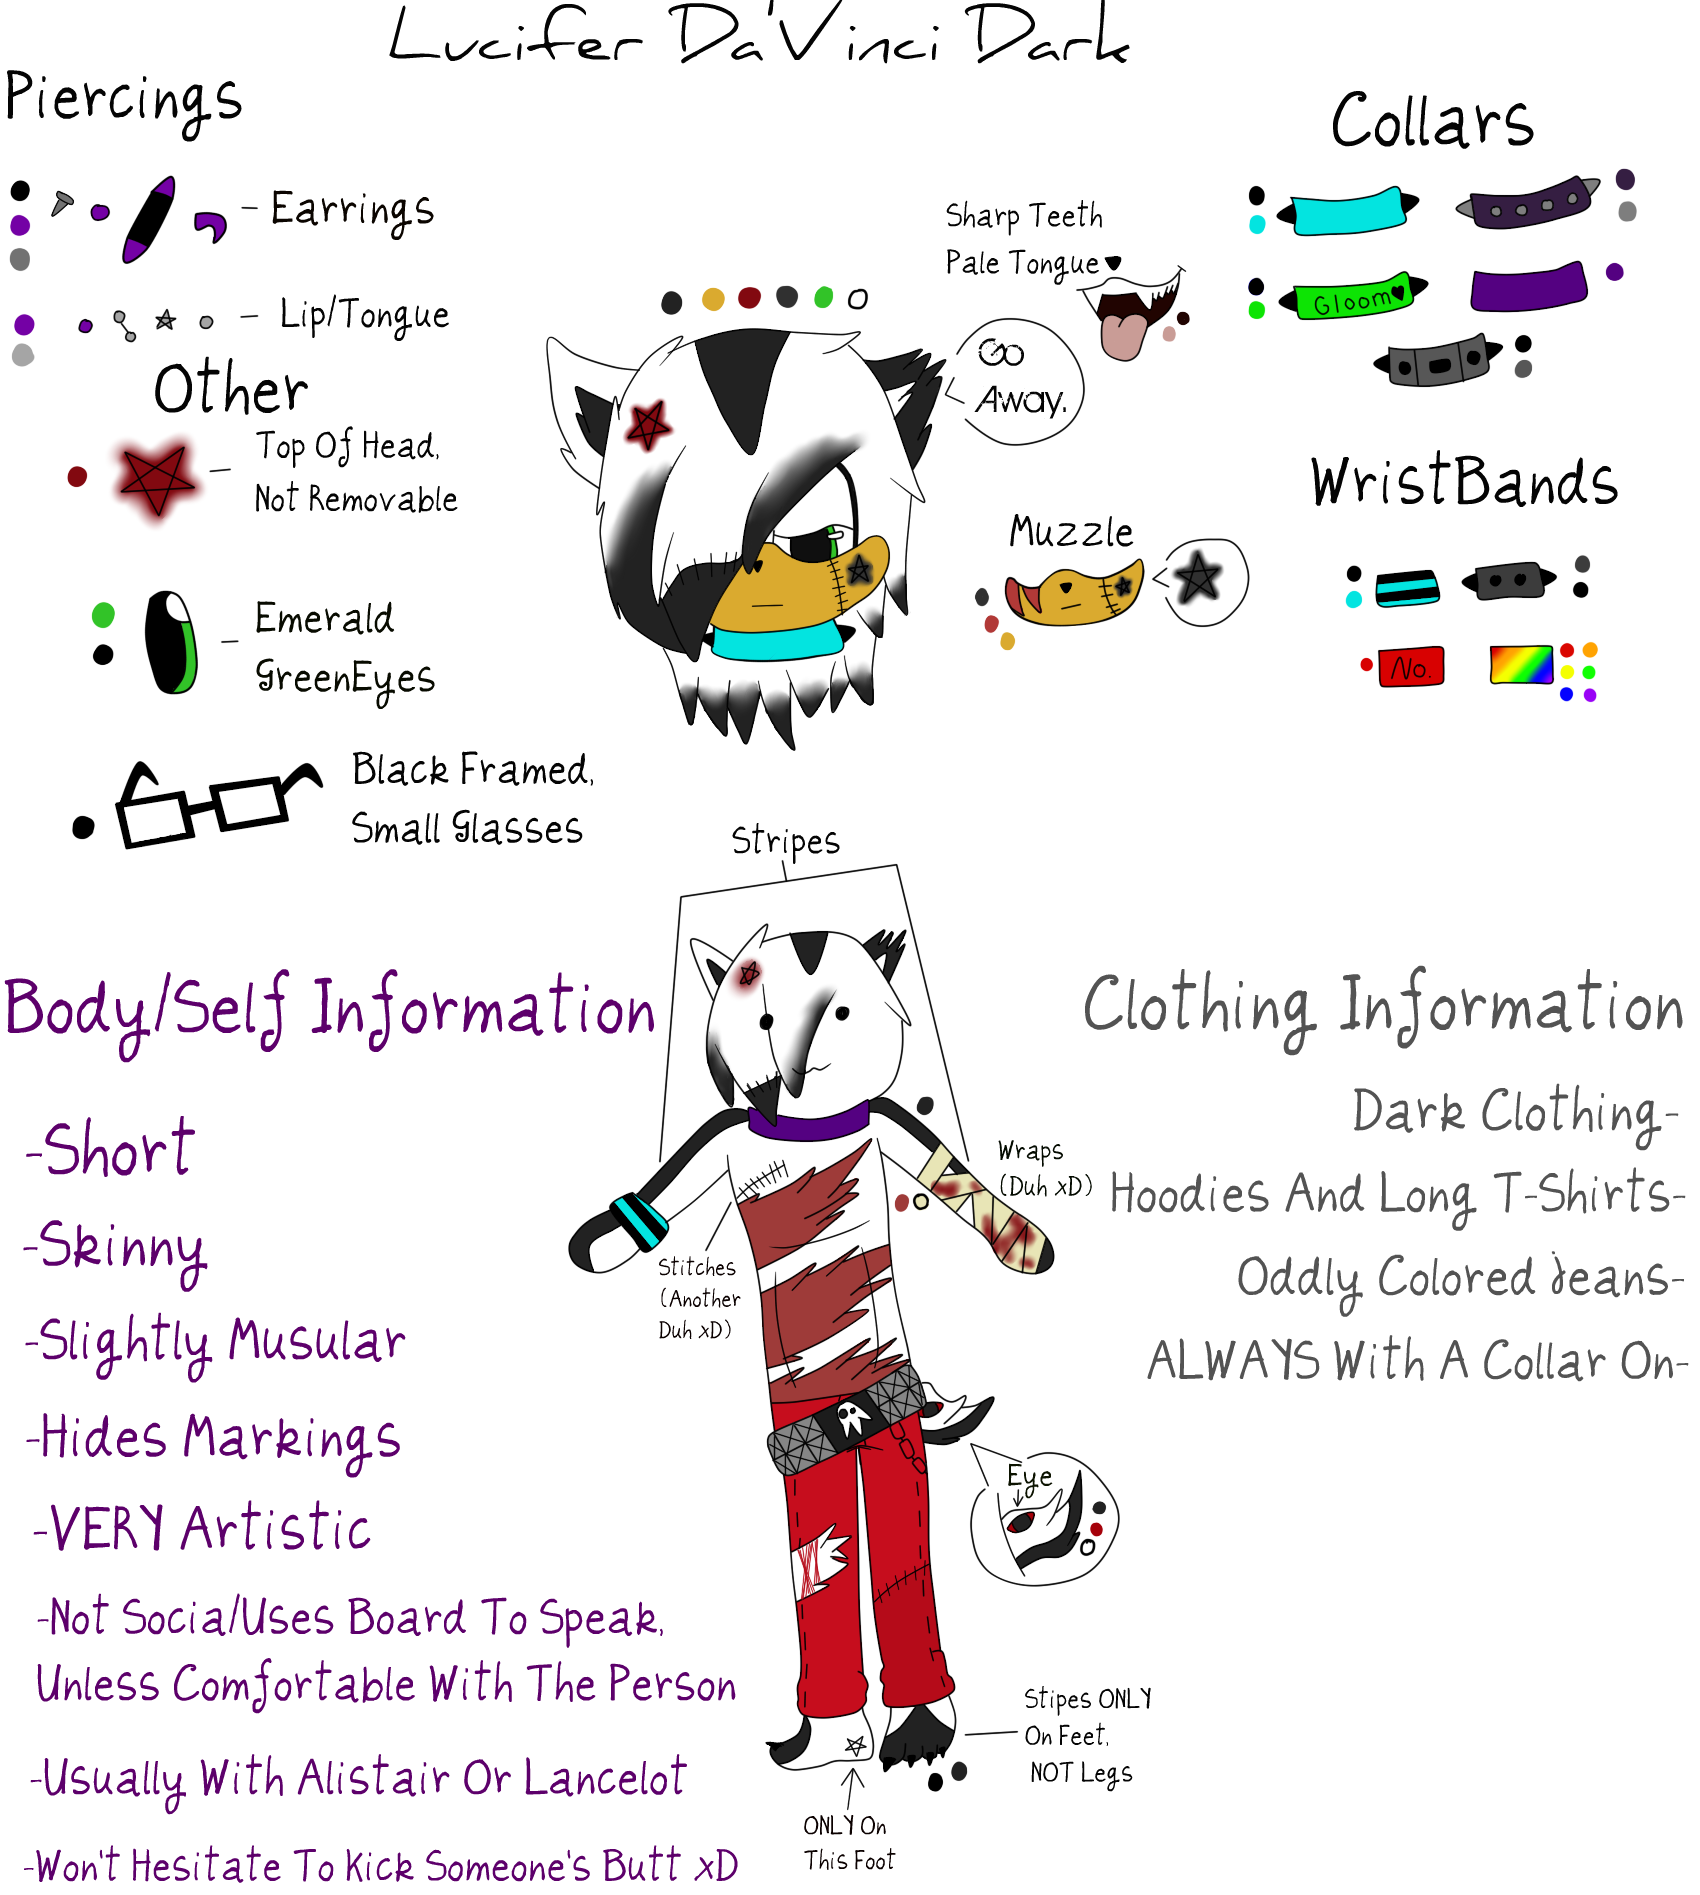 Lucifer Da'Vinci Dark
Piercings
- Earrings
- Lip/Tongue
Other
- Top Of Head,
Not Removable
- Emerald
GreenEyes
Black Framed,
Small Glasses
Sharp Teeth
Pale Tongue
Go
Away.
Muzzle
Collars
Gloom
WristBands
No.
Stripes
Body/Self Information
-Short
-Skinny
-Slightly Musular
-Hides Markings
-VERY Artistic
-Not Social/Uses Board To Speak,
Unless Comfortable With The Person
-Usually With Alistair Or Lancelot
-Won't Hesitate To Kick Someone's Butt xD
Wraps
(Duh xD)
Stitches
(Another
Duh xD)
Eye
Stipes ONLY
On Feet,
NOT Legs
ONLY On
This Foot
Clothing Information
Dark Clothing-
Hoodies And Long T-Shirts-
Oddly Colored Jeans-
ALWAYS With A Collar On-